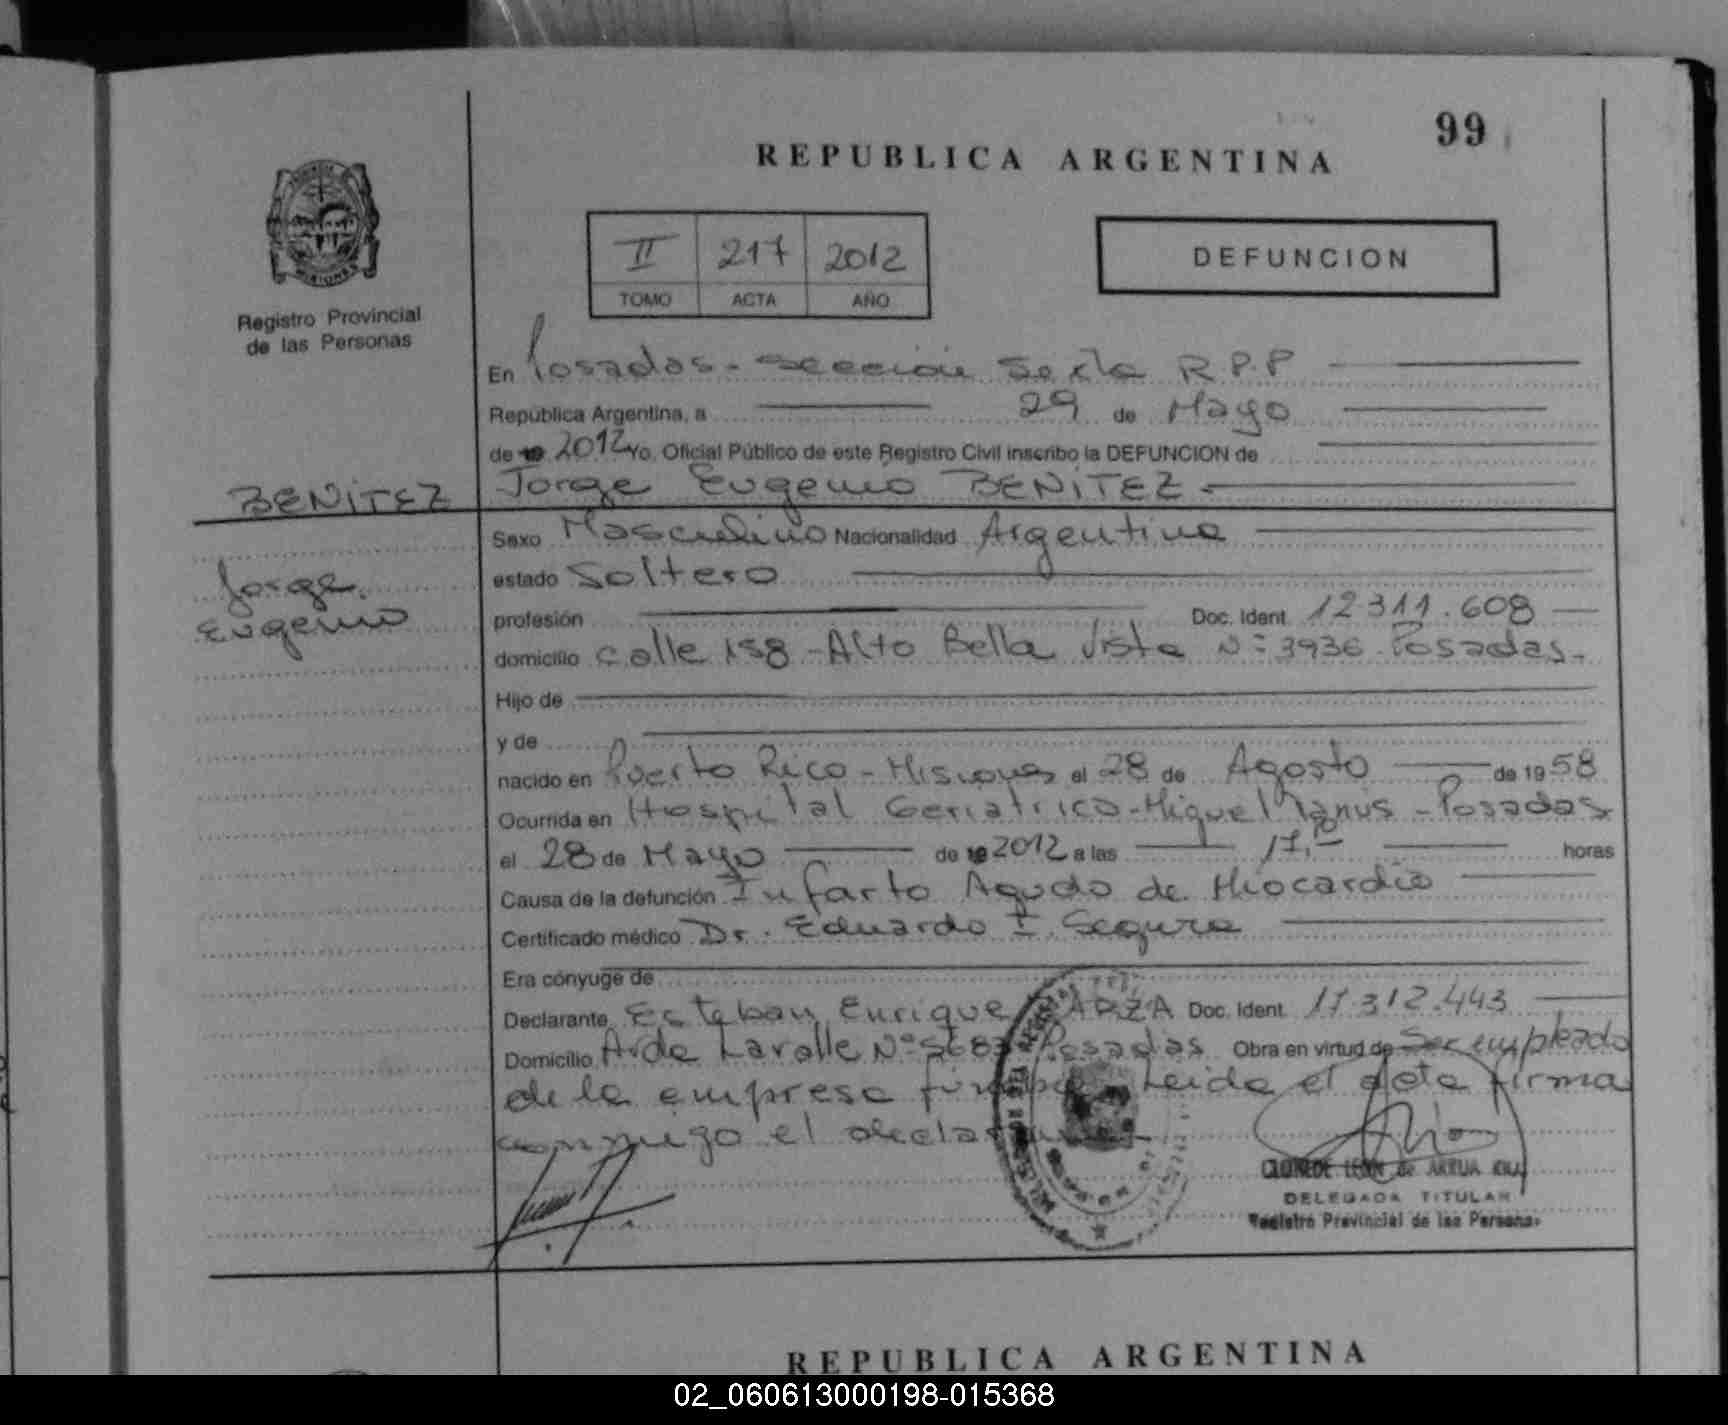 99
REPUBLICA ARGENTINA
II 217 2012
TOMO ACTA AÑO
DEFUNCION
MISIONES
Registro Provincial
de las Personas
En Posadas - Sección Sexta R.P.P
República Argentina, a 29 de Mayo
de 19 2012 Yo, Oficial Público de este Registro Civil inscribo la DEFUNCION de
BENITEZ Jorge Eugenio BENITEZ.-
Jorge
Eugenio
Sexo Masculino Nacionalidad Argentina
estado Soltero
profesión Doc. Ident. 12.311.608
domicilio calle 158 - Alto Bella Vista N° 3936 - Posadas.-
Hijo de
y de
nacido en Puerto Rico - Misiones el 28 de Agosto de 1958
Ocurrida en Hospital Geriatrico - Miguel Lanus - Posadas
el 28 de Mayo de 19 2012 a las 17,10 horas
Causa de la defunción Infarto Agudo de Miocardio
Certificado médico Dr. Eduardo I. Segura
Era cónyuge de
Declarante Esteban Enrique Doc. Ident. 17.312.443
Domicilio Avda Lavalle N° Posadas Obra en virtud de Ser empleado
de la empresa Leida el acta firma
conmigo el
LEON de ARRUA
DELEGADA TITULAR
Registro Provincial de las Personas
REPUBLICA ARGENTINA
02_060613000198-015368